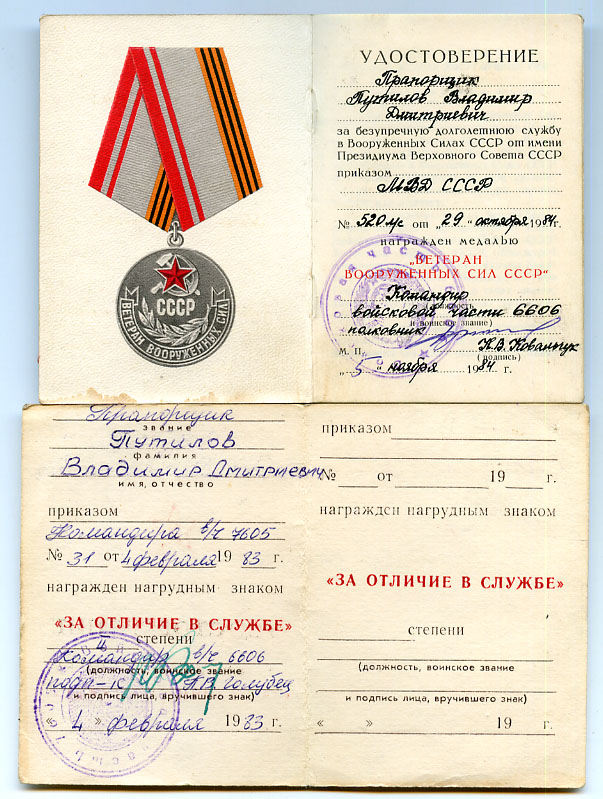 СССР
ВЕТЕРАН ВООРУЖЕННЫХ СИЛ
УДОСТОВЕРЕНИЕ
Прапорщик
Путилов Владимир
Дмитриевич
за безупречную долголетнюю службу
в Вооруженных Силах СССР от имени
Президиума Верховного Совета СССР
приказом
МВД СССР
№ 520 лс от „29" октября 1984г.
награжден медалью
„ВЕТЕРАН
ВООРУЖЕННЫХ СИЛ СССР"
Командир
(должность
войсковой части 6606
и воинское звание)
полковник
Н.В. Ковальчук
М. П. (подпись)
„5" ноября 1984 г.
Прапорщик
звание
Путилов
фамилия
Владимир Дмитриевич
имя, отчество
приказом
Командира в/ч 7605
№ 31 от 4 февраля 1983 г.
награжден нагрудным знаком
„ЗА ОТЛИЧИЕ В СЛУЖБЕ"
II степени
Командир в/ч 6606
(должность, воинское звание
подп-к Голубец
и подпись лица, вручившего знак)
„4" февраля 1983 г.
приказом
№ от 19 г.
награжден нагрудным знаком
„ЗА ОТЛИЧИЕ В СЛУЖБЕ"
степени
(должность, воинское звание
и подпись лица, вручившего знак)
« » 19 г.